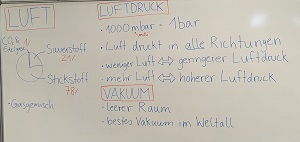 LUFT
CO2 &
Edelgase 1%
Sauerstoff
21%
Stickstoff
78%
- Gasgemisch
LUFTDRUCK
• 1000 mbar = 1bar
• Luft drückt in alle Richtungen
• weniger Luft ⇔ geringerer Luftdruck
• mehr Luft ⇔ höherer Luftdruck
VAKUUM
- leerer Raum
- bestes Vakuum im Weltall